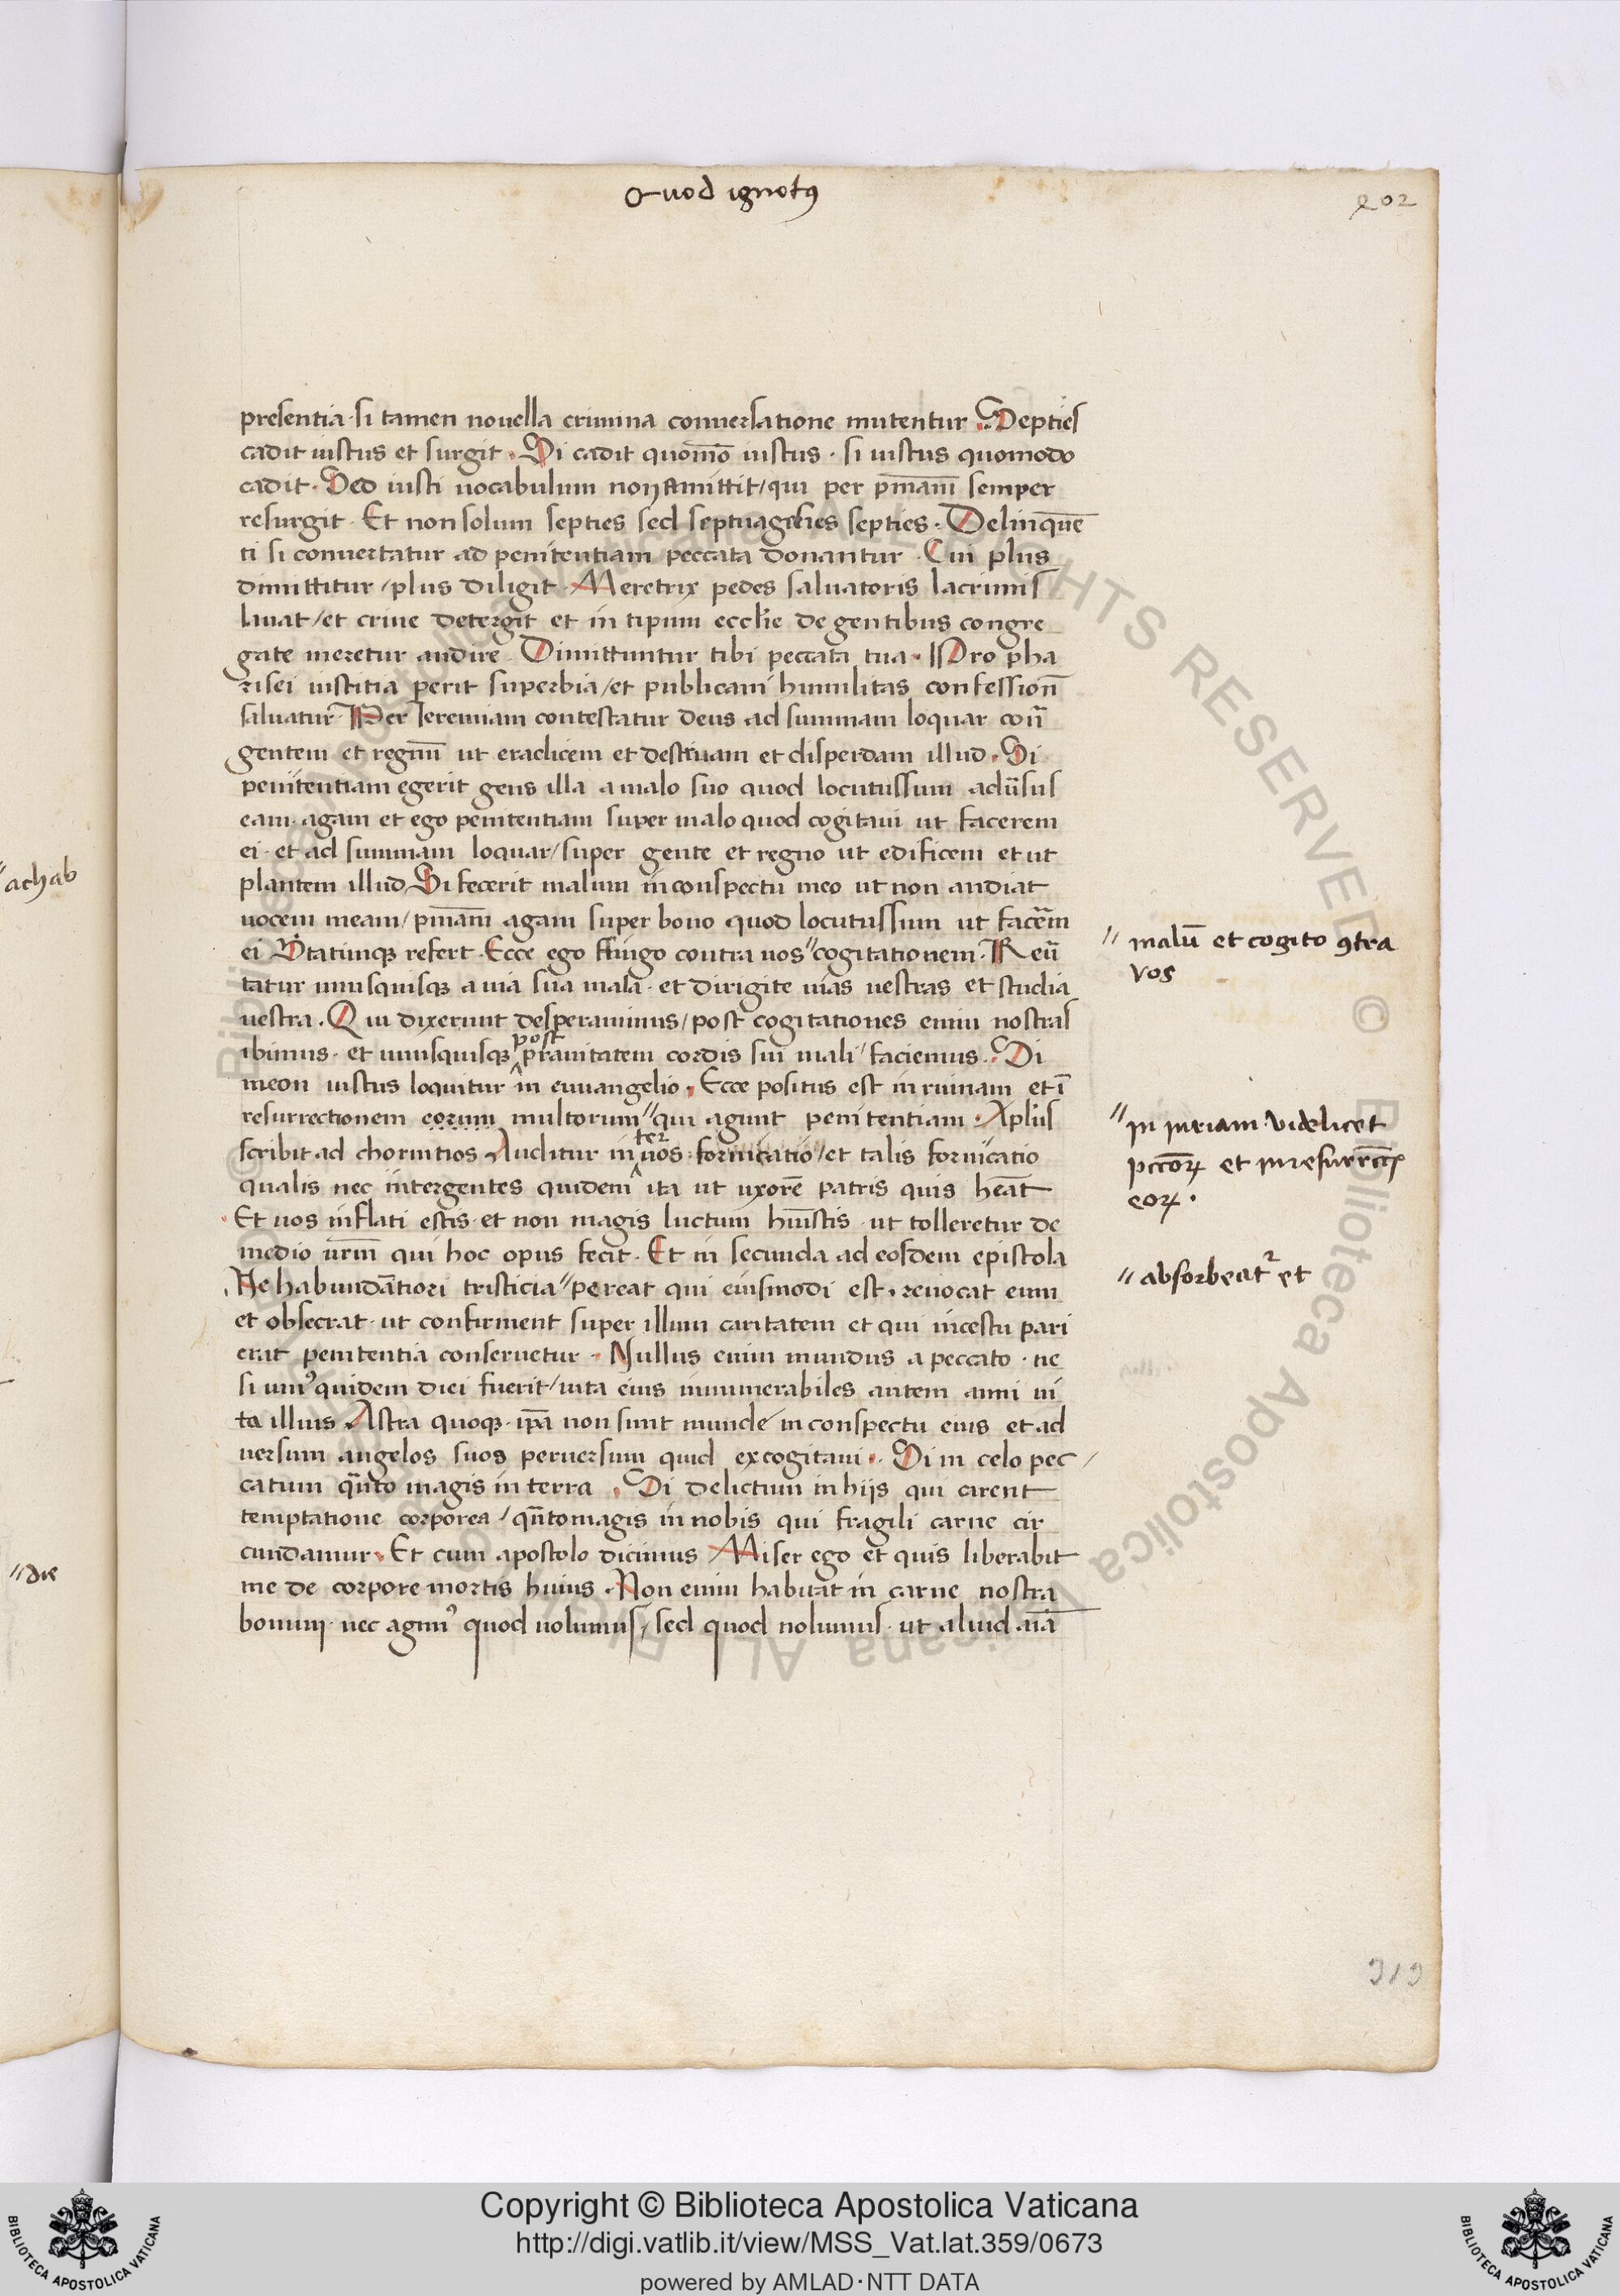 Quod ignotꝰ
202
presentia · si tamen nouella crimina conuersatione mutentur · Septies
cadit iustus et surgit · Si cadit quom̄o iustus · si iustus quomodo
cadit · Sed iusti uocabulum non amittit / qui per pn̄iam semper
resurgit · Et non solum septies sed septuagesies septies · Delinquē
ti si conuertatur ad penitentiam peccata donantur · Cui plus
dimittitur / plus diligit · Meretrix pedes saluatoris lacrimis
lauat / et crine detergit et in tipum eccl̄ie de gentibus congre
gate meretur audire · Dimittuntur tibi peccata tua · Pro pha
risei iustitia perit superbia / et publicani humilitas confession̄
saluatur · Per Ieremiam contestatur deus ad summam loquar cont̄
gentem et regnū ut eradicem et destruam et disperdam illud · Si
penitentiam egerit gens illa a malo suo quod locutus sum adūsus
eam · agam et ego penitentiam super malo quod cogitaui ut facerem
ei · et ad summam loquar / super gente et regno ut edificem et ut
plantem illud Si fecerit malum in conspectu meo ut non audiat
uocem meam / pn̄iam agam super bono quod locutus sum ut facerem
ei Statimqꝫ refert · Ecce ego fingo contra uos // cogitationem · Reū
tatur unusquisqꝫ a uia sua mala · et dirigite uias uestras et studia
uestra · Qui dixerunt desperauimus / post cogitationes enim nostras
post
ibimus · et unusquisqꝫ prauitatem cordis sui mali / faciemus · Si
meon iustus loquitur in euuangelio · Ecce positus est in ruinam et ī
resurrectionem eorum multorum // qui agunt penitentiam · Apl̄us
ter
scribit ad chorintios Auditur in uos fornicatio / et talis fornicatio
qualis nec inter gentes quidem ita ut uxorē patris quis hēat
Et uos inflati estis · et non magis luctum hūistis · ut tolleretur de
medio ur̄m qui hoc opus fecit · Et in secunda ad eosdem epistola
Ne habundātiori tristicia // pereat qui eiusmodi est · reuocat eum
et obsecrat · ut confirment super illum caritatem et qui incestu pari
erat penitentia conseruetur · Nullus enim mundus a peccato · ne
si unꝰ quidem diei fuerit / uita eius innumerabiles autem anni ui
ta illius Astra quoqꝫ · ip̄a non sunt munde in conspectu eius et ad
uersum angelos suos peruersum quid excogitaui · Si in celo pec /
catum qn̄to magis in terra · Si delictum in hijs qui carent
temptatione corporea / qn̄to magis in nobis qui fragili carne cir
cundamur · Et cum apostolo dicimus Miser ego et quis liberabit
me de corpore mortis huius · Non enim habitat in carne nostra
bonum · nec agimꝰ quod uolumus / sed quod nolumus · ut aliud aīa
// malū et cogito ꝯtra
vos
// in ruinam videlicet
pctōꝝ et in resurrēctō
eoꝝ ·
// absorbeatr et
// achab
// die
Copyright © Biblioteca Apostolica Vaticana
http://digi.vatlib.it/view/MSS_Vat.lat.359/0673
powered by AMLAD·NTT DATA
BIBLIOTECA APOSTOLICA VATICANA
BIBLIOTECA APOSTOLICA VATICANA